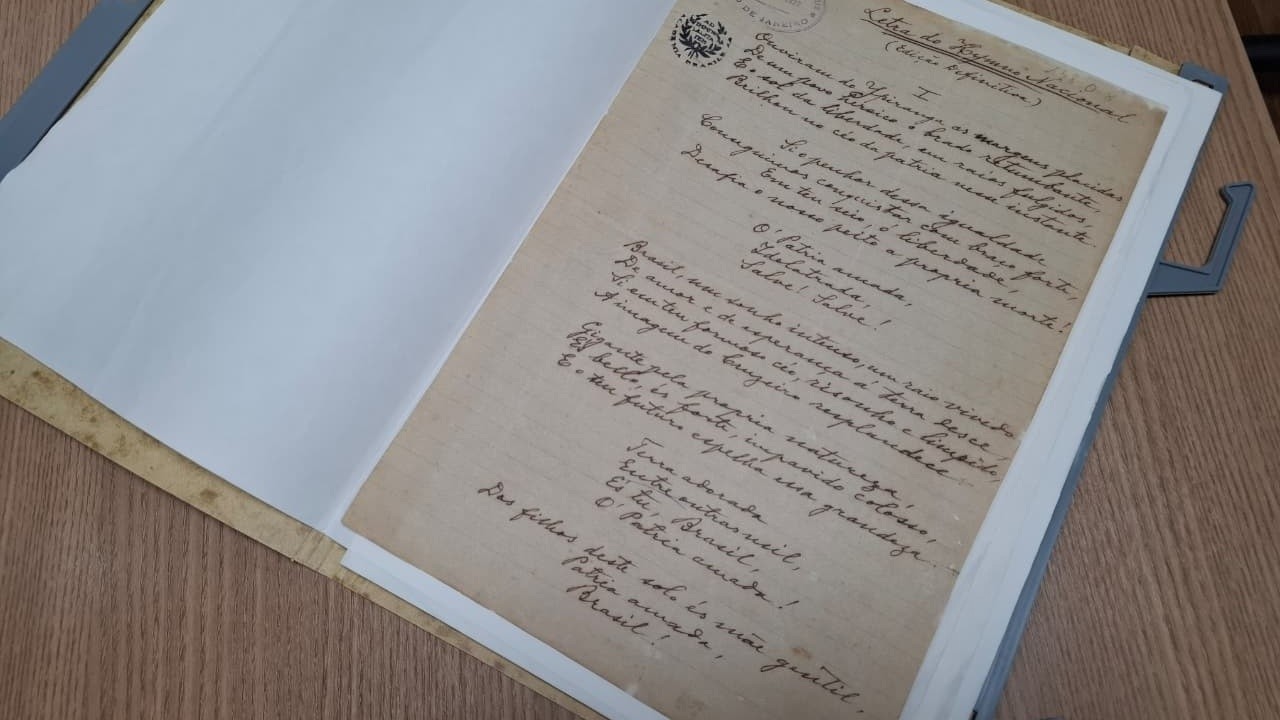 DE JANEIRO
Letra do Hymno Nacional
(Edição definitiva)
I
Ouviram do Ypiranga as margens placidas
De um povo heroico o brado retumbante,
E o sol da liberdade, em raios fulgidos,
Brilhou no céo da patria nesse instante.
Si o penhor dessa igualdade
Conseguimos conquistar com braço forte,
Em teu seio, ó liberdade,
Desafia o nosso peito a propria morte!
O' Patria amada,
Idolatrada,
Salve! Salve!
Brasil, um sonho intenso, um raio vivido
De amor e de esperança á terra desce,
Si em teu formoso céo, risonho e limpido,
A imagem do Cruzeiro resplandece.
Gigante pela propria natureza,
És bello, és forte, impavido colosso,
E o teu futuro espelha essa grandeza.
Terra adorada
Entre outras mil,
És tu, Brasil,
O' Patria amada!
Dos filhos deste solo és mãe gentil,
Patria amada,
Brasil!